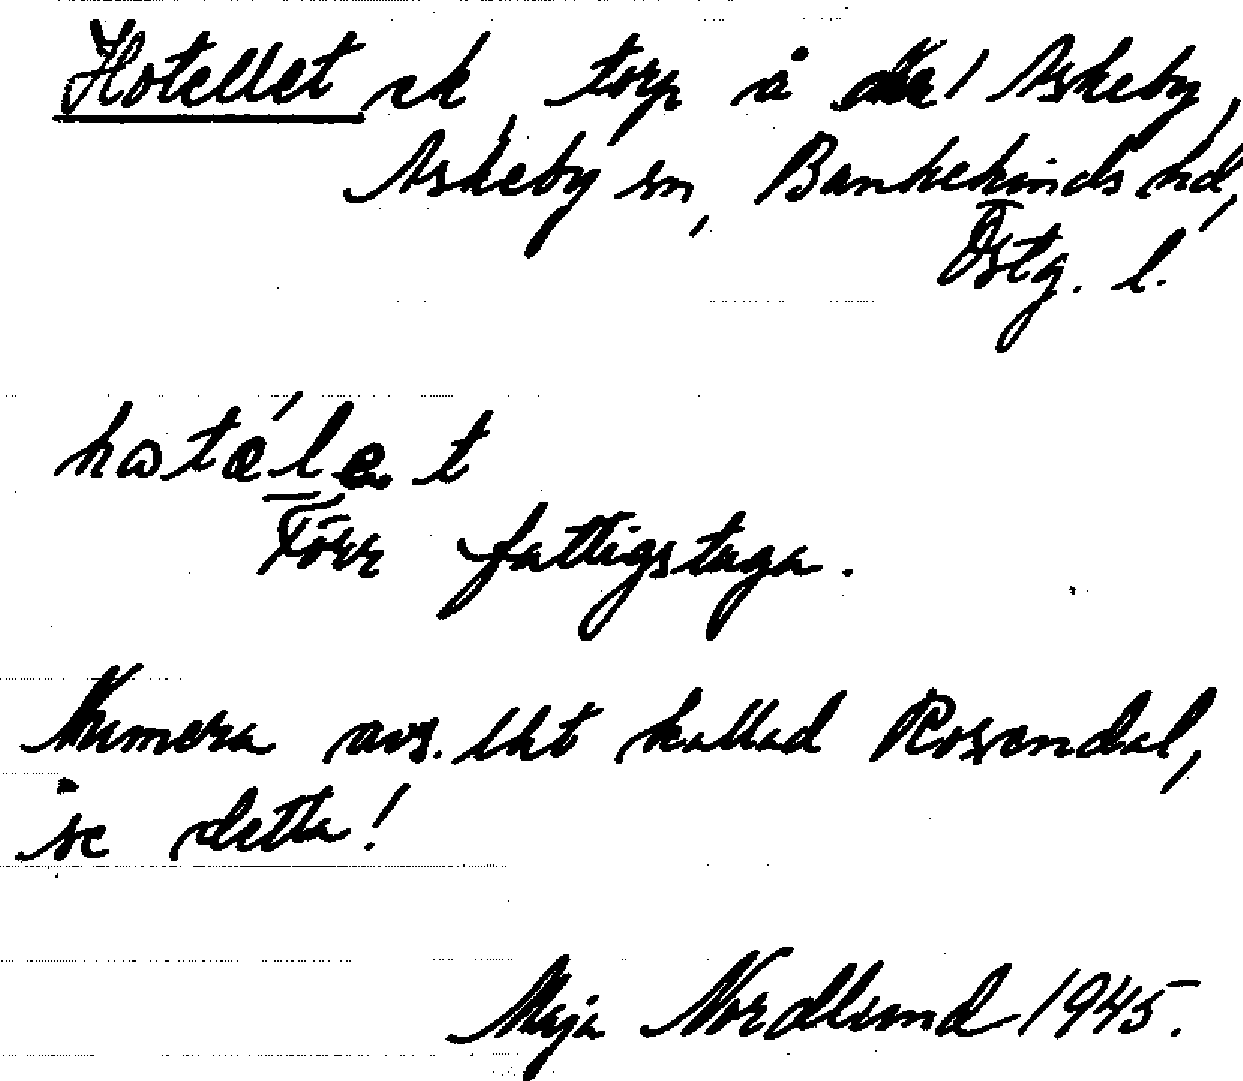 Hotellet ek torp å Askeby,
Askeby sn, Bankekinds hd,
Östg. l.
hɷtæ´lət
Förr fattigstuga.
Numera avs. lht kallad Rosendal,
se detta!
Maja Nordlund 1945.